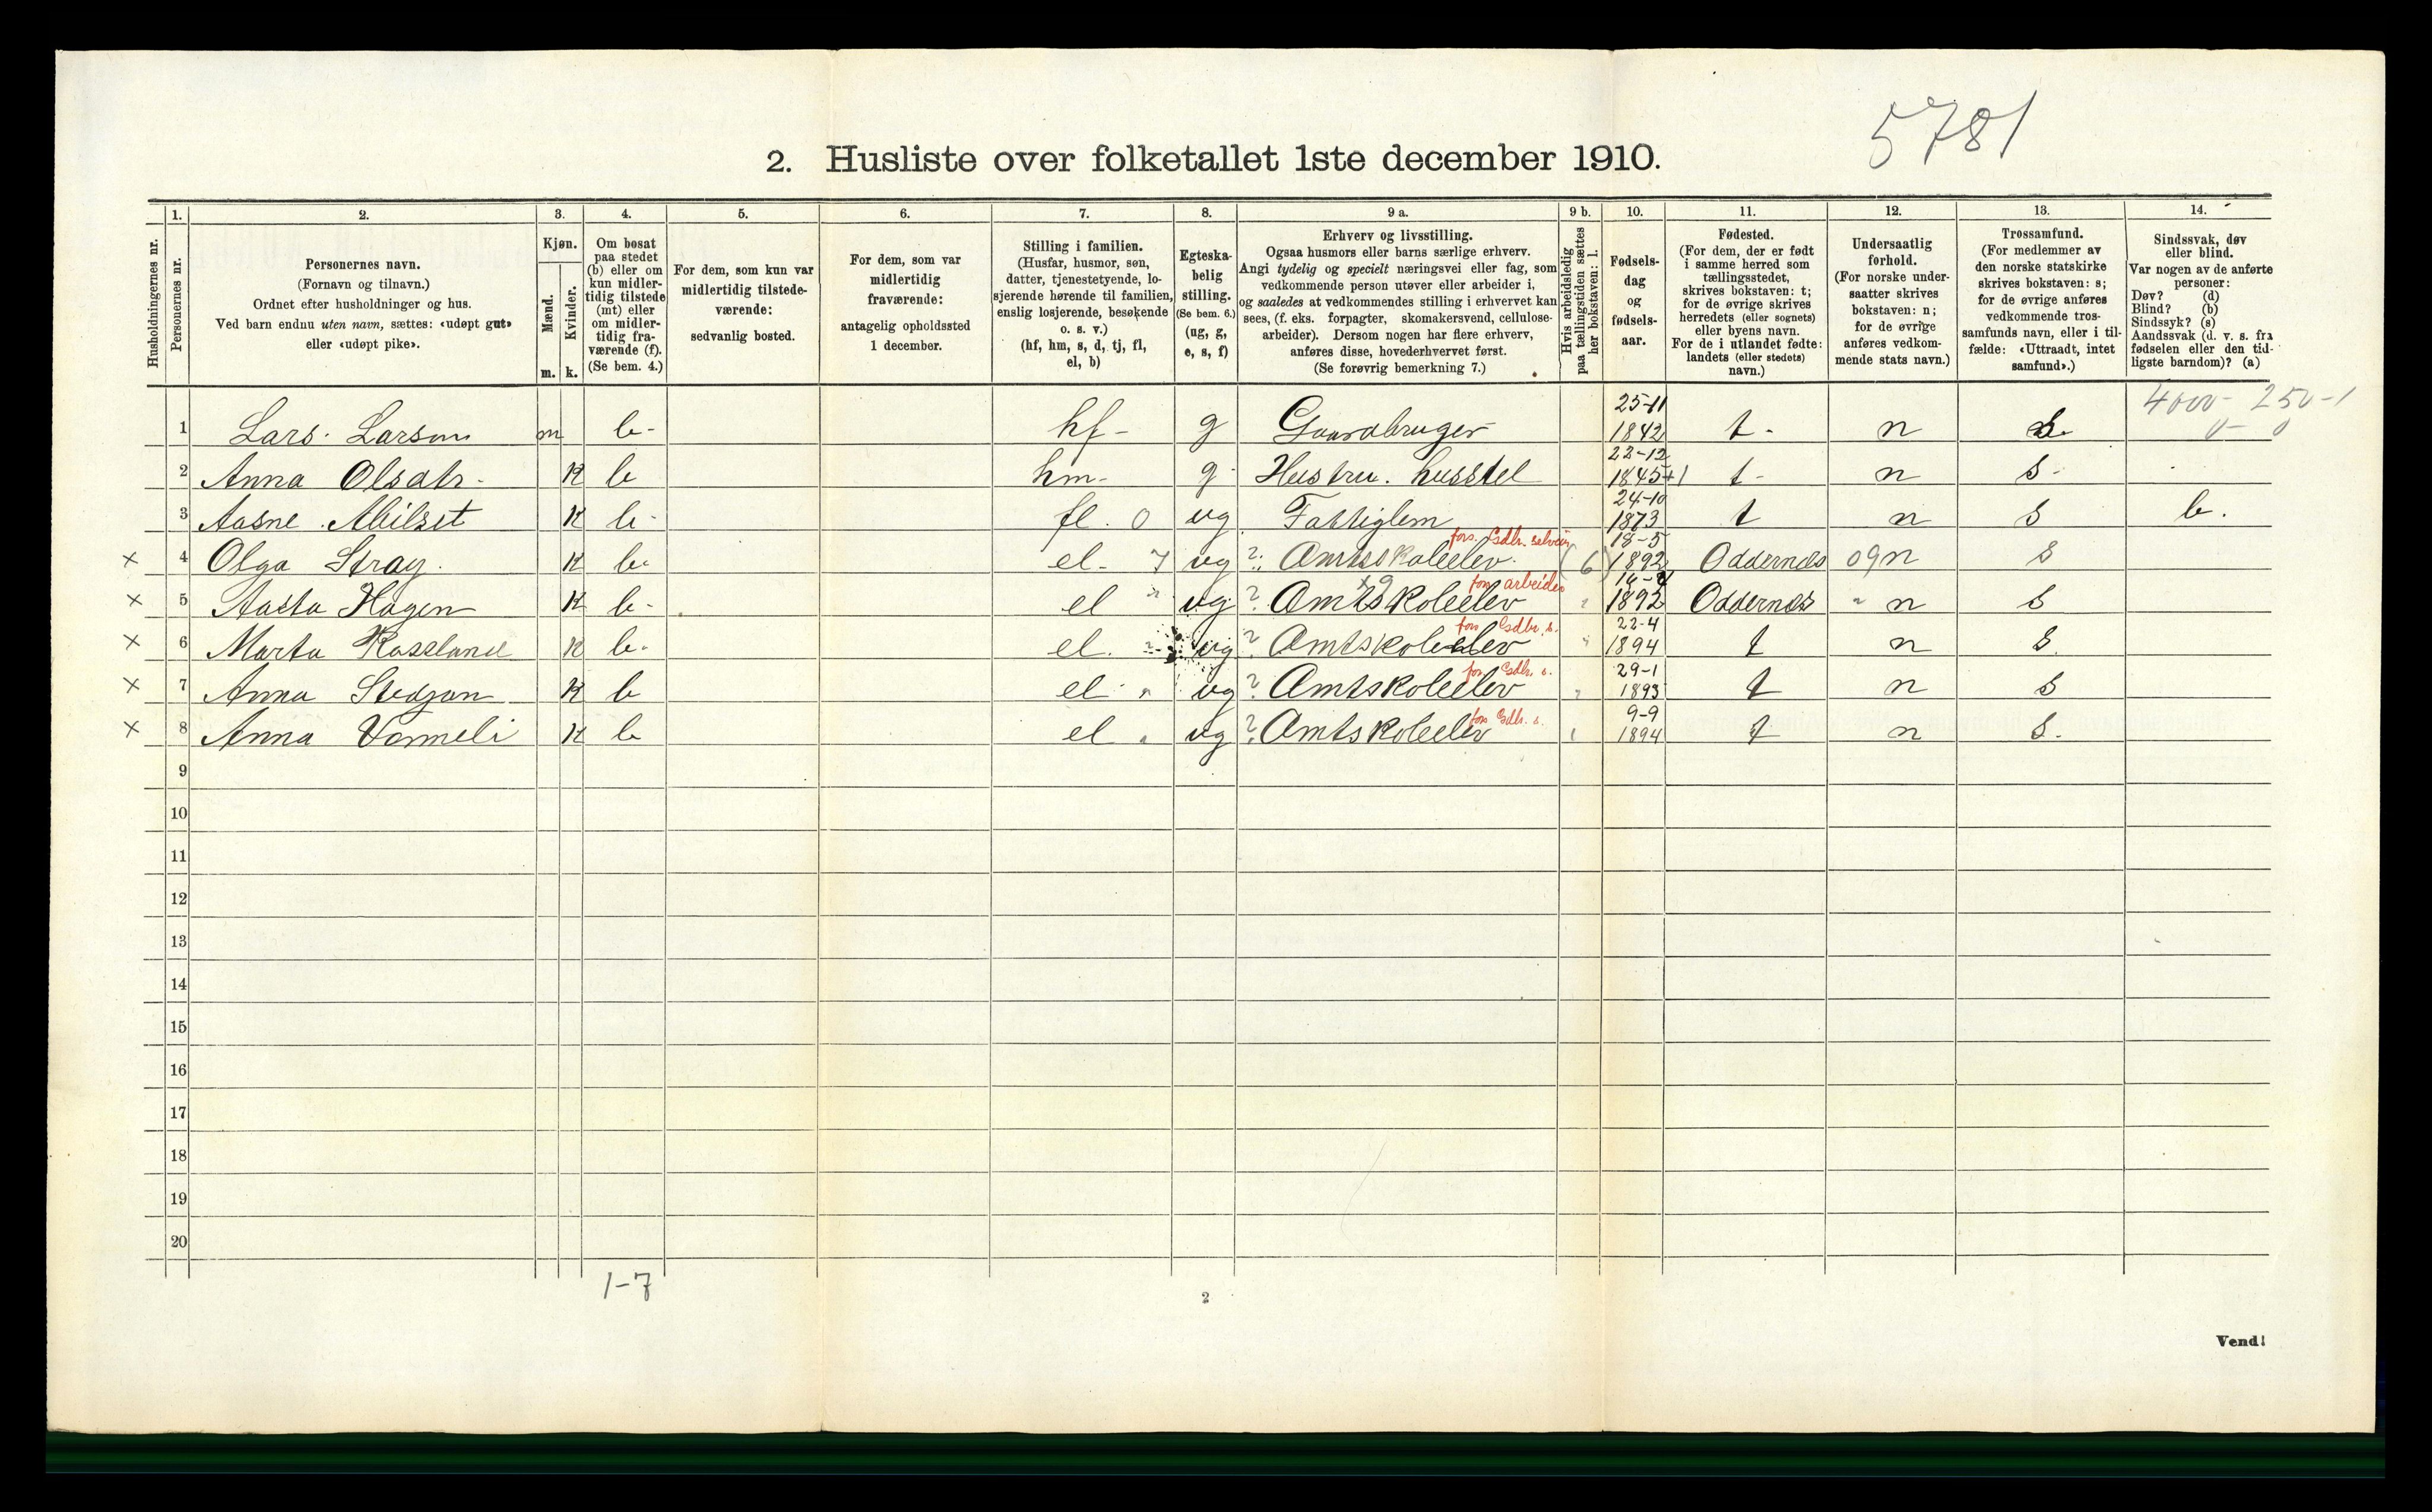 5781
2. Husliste over folketallet 1ste december 1910.
Husholdningernes nr.
1. 2. 3. 4. 5. 6. 7. 8. 9 a. 9 b. 10. 11. 12. 13. 14.
Personernes nr.
Personernes navn.
(Fornavn og tilnavn.)
Ordnet efter husholdninger og hus.
Ved barn endnu uten navn, sættes: «udøpt gut»
eller «udøpt pike».
Kjøn.
Mænd.
Kvinder.
m. k.
Om bosat
paa stedet
(b) eller om
kun midler-
tidig tilstede
(mt) eller
om midler-
tidig fra-
værende (f).
(Se bem. 4.)
For dem, som kun var
midlertidig tilstede-
værende:
sedvanlig bosted.
For dem, som var
midlertidig
fraværende:
antagelig opholdssted
1 december.
Stilling i familien.
(Husfar, husmor, søn,
datter, tjenestetyende, lo-
sjerende hørende til familien,
enslig losjerende, besøkende
o. s. v.)
(hf, hm, s, d, tj, fl,
el, b)
Egteska-
belig
stilling.
(Se bem. 6.)
(ug, g,
e, s, f)
Erhverv og livsstilling.
Ogsaa husmors eller barns særlige erhverv.
Angi tydelig og specielt næringsvei eller fag, som
vedkommende person utøver eller arbeider i,
og saaledes at vedkommendes stilling i erhvervet kan
sees, (f. eks. forpagter, skomakersvend, cellulose-
arbeider). Dersom nogen har flere erhverv,
anføres disse, hovederhvervet først.
(Se forøvrig bemerkning 7.)
Hvis arbeidsledig
paa tællingstiden sættes
her bokstaven: l.
Fødsels-
dag
og
fødsels-
aar.
Fødested.
(For dem, der er født
i samme herred som
tællingsstedet,
skrives bokstaven: t;
for de øvrige skrives
herredets (eller sognets)
eller byens navn.
For de i utlandet fødte:
landets (eller stedets)
navn.)
Undersaatlig
forhold.
(For norske under-
saatter skrives
bokstaven: n;
for de øvrige
anføres vedkom-
mende stats navn.)
Trossamfund.
(For medlemmer av
den norske statskirke
skrives bokstaven: s;
for de øvrige anføres
vedkommende tros-
samfunds navn, eller i til-
fælde: «Uttraadt, intet
samfund».)
Sindssvak, døv
eller blind.
Var nogen av de anførte
personer:
Døv? (d)
Blind? (b)
Sindssyk? (s)
Aandssvak (d. v. s. fra
fødselen eller den tid-
ligste barndom)? (a)
4000- 250-1
0- 0
1 Lars Larsen m b- hf- g Gaardbruger 25-11 1842 t- n s
2 Anna Olsdtr. K b hm- g Hustru. husstel 22-12 1845+1 t- n s-
3 Aasne K b- fl. 0 ug Fattiglem 24-10 1873 t n s b.
× 4 Olga Stray K b- el- 7 ug ? Amtsskoleelev. fors. Gdbr. selveier (6) 18-5 1892 Oddernes 09 n s
× 5 Aasta Hagen K b- el " ug ? Amtskoleelev fors arbeider " 1892 Oddernes " n s
× 6 Marta Rossland K b- el. " ug ? Amtskoleelev fors Gdbr. s. " 22-4 1894 t n s.
× 7 Anna Stedjan K b el " ug ? Amtskoleelev fors Gdbr. s. " 29-1 1893 t n s
× 8 Anna Vormeli K b el " ug ? Amtskoleelev fors Gdbr. s. 9-9 1894 t n s.
9
10
11
12
13
14
15
16
17
18
19
20
1-7
2
Vend!